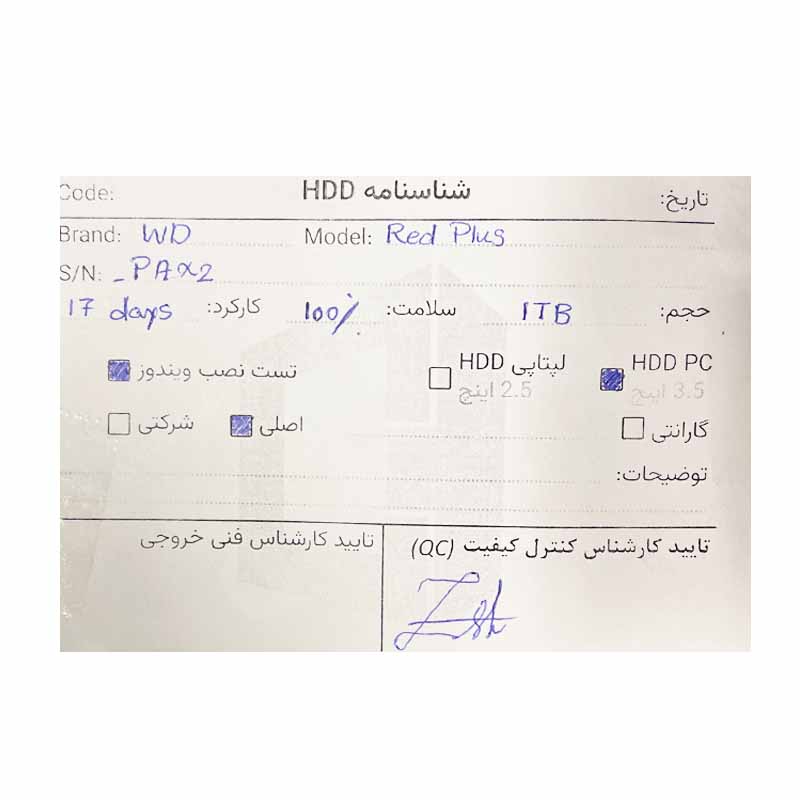 تاریخ: شناسنامه HDD Code:
Brand: WD Model: Red Plus
S/N: _PAX2
حجم: 1TB سلامت: 100% کارکرد: 17 days
HDD PC لپتاپی HDD تست نصب ویندوز
3.5 اینچ 2.5 اینچ
گارانتی اصلی شرکتی
توضیحات:
تایید کارشناس کنترل کیفیت (QC) تایید کارشناس فنی خروجی